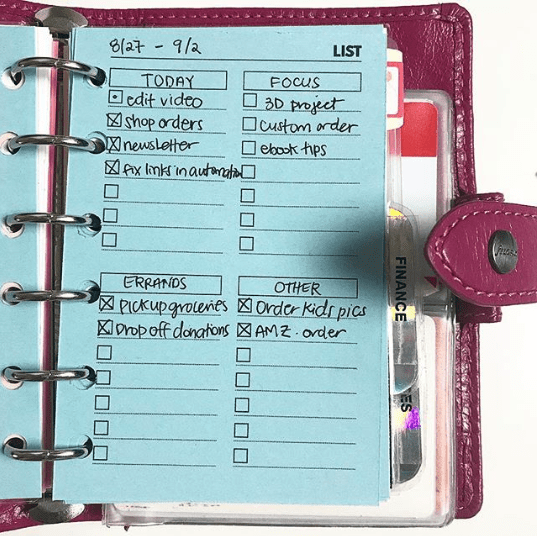 8/27 - 9/2
LIST
TODAY
edit video
shop orders
newsletter
fix links in automation
FOCUS
3D project
custom order
ebook tips
ERRANDS
Pick up groceries
Drop off donations
OTHER
Order kids pics
AMZ. order
FINANCE